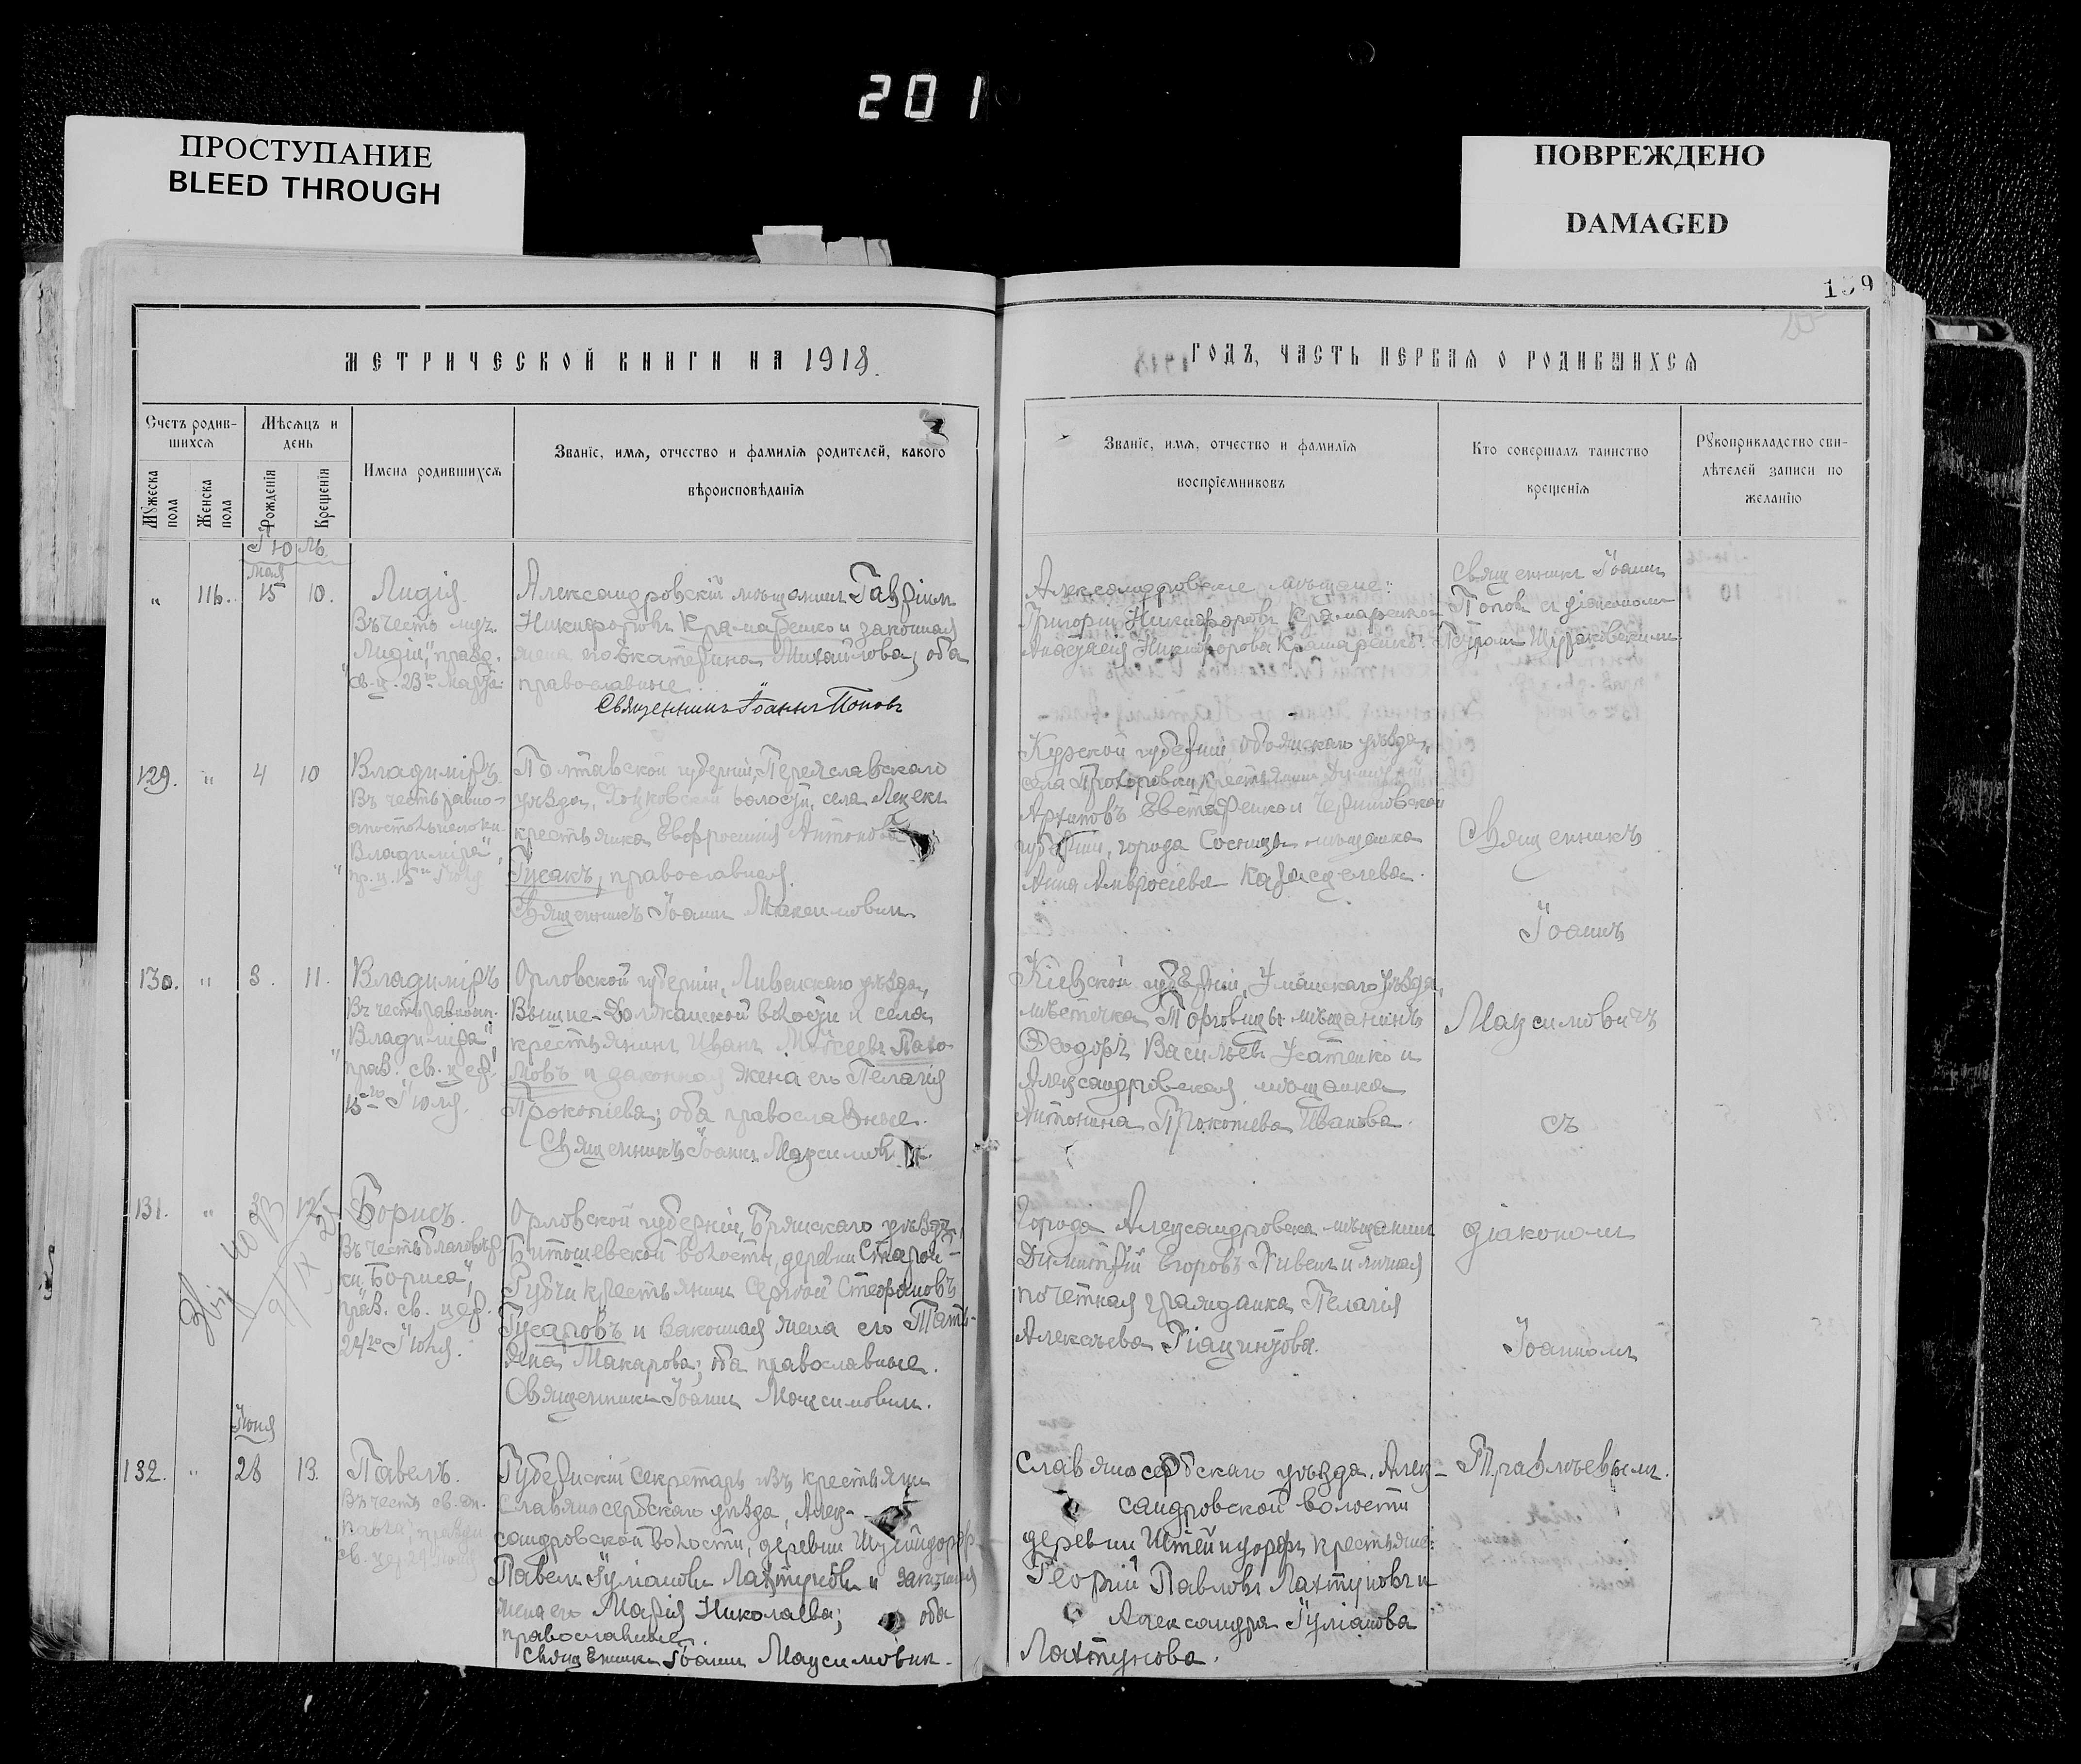 201
ПРОСТУПАНИЕ
BLEED THROUGH
ПОВРЕЖДЕНО
DAMAGED
МЕТРИЧЕСКОЙ КНИГИ НА 1918.
Счетъ родив-
шихся
Мѣсяцъ и
день
Мужеска
пола
Женска
пола
Рожденія
Крещенія
Имена родившихся
Званіе, имя, отчество и фамилія родителей, какого
вѣроисповѣданія
Іюль
" 116. Мая 15 10.
Лидія.
Въ честь муч.
Лидіи", празд.
св. ц. 23го Марта.
Александровскій мѣщанинъ Гавріилъ
Никифоровъ Крамаренко и законная
жена его Екатерина Михайлова; оба
православные.
Священникъ Іоаннъ Поповъ
129. " 4 10
Владиміръ
Въ честь равно-
апостольнаго кн.
Владиміра",
пр. ц. 15го Іюля
Полтавской губерніи, Переяславскаго
уѣзда, волости, села
крестьянка Евфросинія Антонова
Гусакъ, православная.
Священникъ Іоаннъ Максимович
130. " 8. 11.
Владиміръ
Въ честь равноап.
Владиміра",
праз. св. цер.
15го Іюля.
Орловской губерніи, Ливенскаго уѣзда,
Вышне-Должанской волости и села
крестьянинъ Иванъ Моѵсеевъ Пахо-
мовъ и законная жена его Пелагія
Прокопіева; оба православные.
Священникъ Іоаннъ Максимович.
131. " 3 12
Борисъ.
Въ честь благовѣр.
кн. Бориса",
праз. св. цер.
24го Іюля.
Орловской губерніи, Брянскаго уѣзда,
Битошевской волости, деревни Старой-
Рубчи крестьянинъ Сергѣй Стефановъ
Гусаровъ и законная жена его Тать-
яна Макарова; оба православные.
Священникъ Іоаннъ Максимович.
Іюня
132. " 28 13.
Павелъ.
Въ честь св. ап.
Павла", праздн.
св. цер. 29 Іюня
Губернскій секретарь изъ крестьянъ
Славяносербскаго уѣзда, Алек-
сандровской волости, деревни
Павелъ Іуліановъ Лахтуновъ и законная
жена его Марія Николаева; оба
православные.
Священникъ Іоаннъ Максимович.
159
ГОДЪ, ЧАСТЬ ПЕРВАЯ О РОДИВШИХСЯ
Званіе, имя, отчество и фамилія
воспріемниковъ
Кто совершалъ таинство
крещенія
Рукоприкладство сви-
дѣтелей записи по
желанію
Александровскіе мѣщане:
Григорій Никифоровъ Крамаренко и
Анастасія Никифорова Крамаренко.
Священникъ Іоаннъ
Поповъ съ діакономъ
Петромъ
Курской губерніи Обоянскаго уѣзда,
села Прохоровки, крестьянинъ Димитрій
Архиповъ Евстафенко и Черниговской
губерніи, города Сосницы мѣщанка
Анна Амвросіева
Священникъ
Іоаннъ
Кіевской губерніи, Уманскаго уѣзда,
мѣстечка Торговицы мѣщанинъ
Ѳеодоръ Васильевъ Усатенко и
Александровская мѣщанка
Антонина Прокопіева Иванова.
Максимовичъ
съ
Города Александровска мѣщанинъ
Димитрій Егоровъ Живенъ и личная
почетная гражданка Пелагія
Алексѣева Гіацинтова.
діакономъ
Іоанномъ
Славяносербскаго уѣзда, Алек-
сандровской волости
деревни Штейндорфъ крестьяне:
Георгій Павловъ Лахтуновъ и
Александра Іуліанова
Лахтунова.